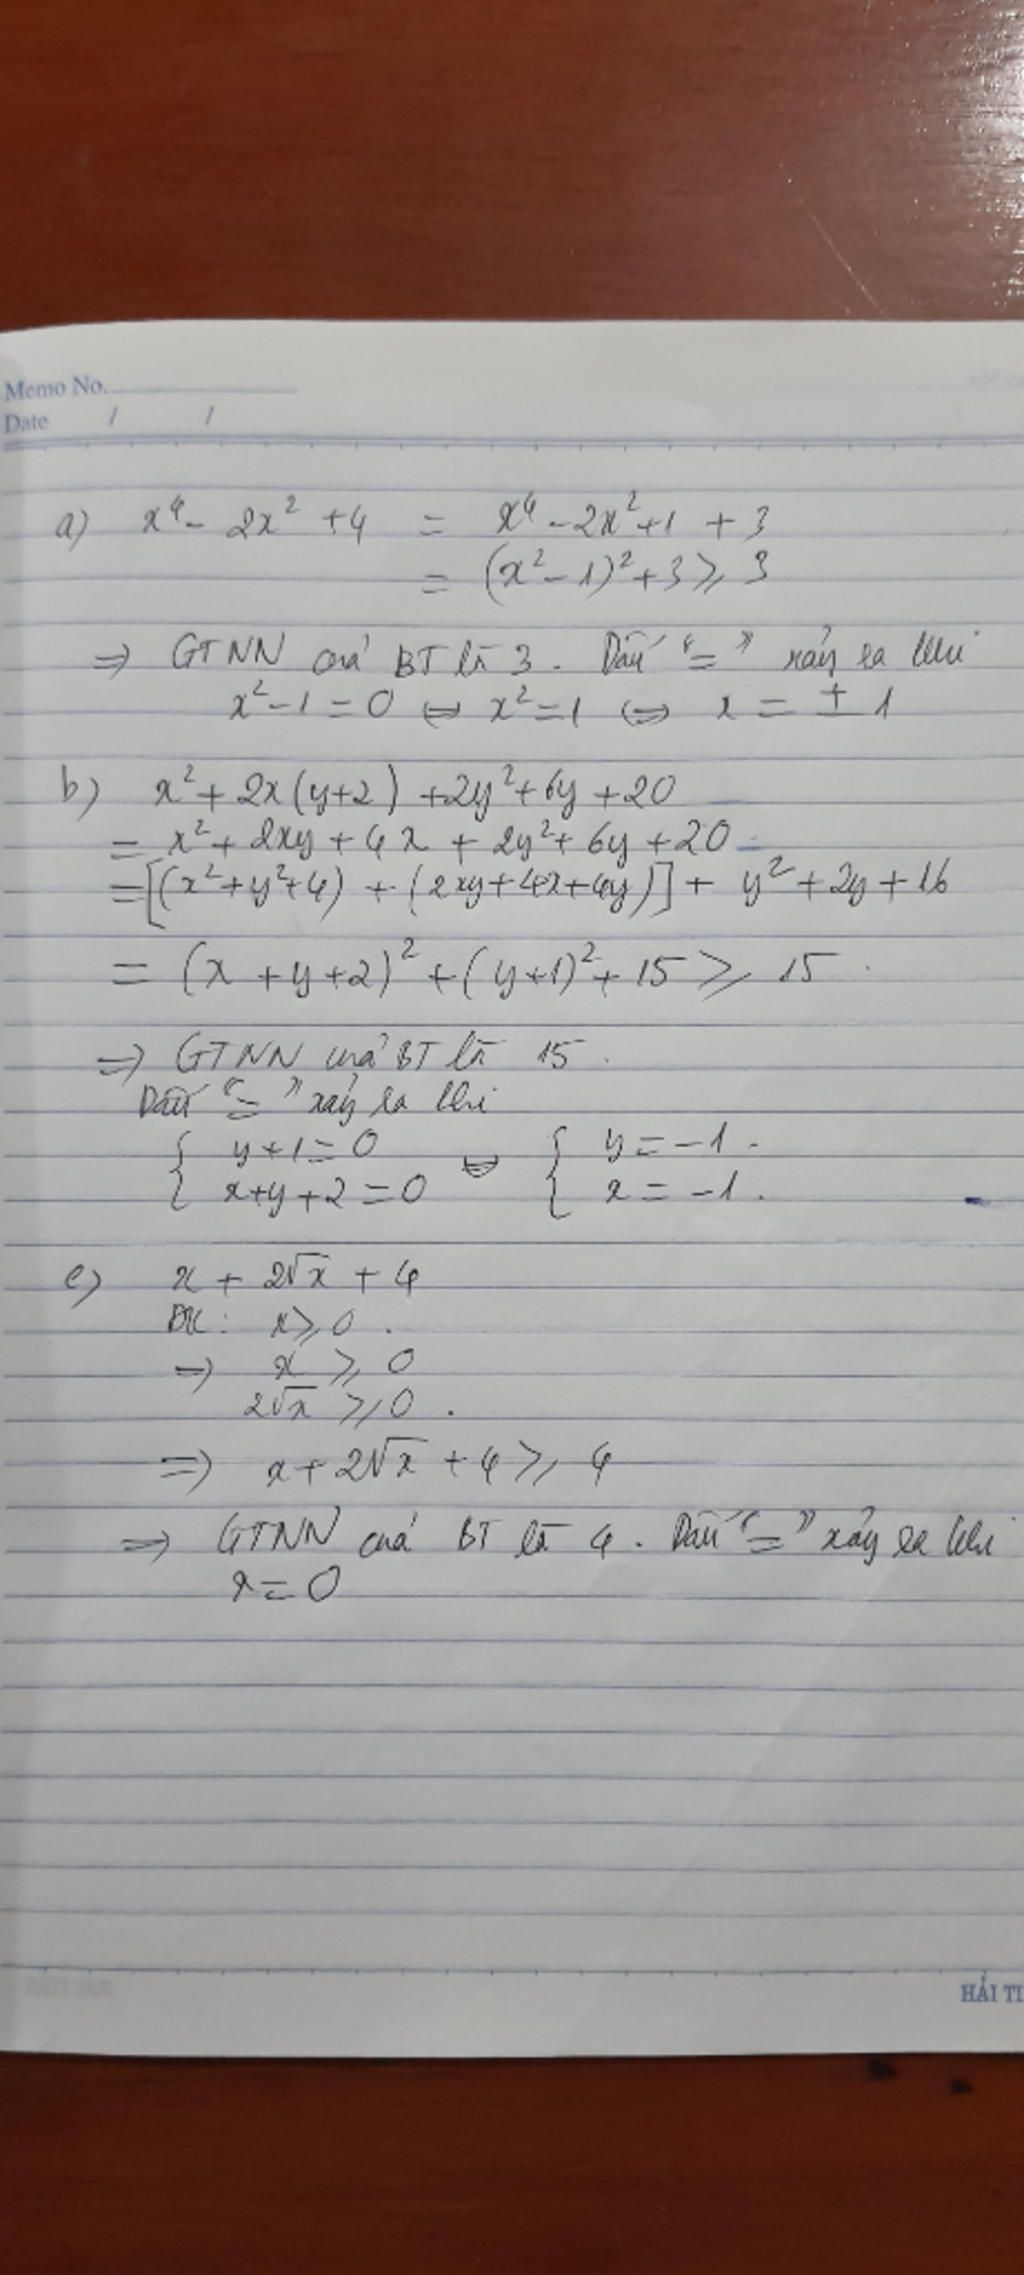 Memo No.
Date / /
a) x⁴ - 2x² + 4 = x⁴ - 2x² + 1 + 3
= (x² - 1)² + 3 ⩾ 3
⇒ GTNN của BT là 3. Dấu "=" xảy ra khi
x² - 1 = 0 ⇔ x² = 1 ⇔ x = ± 1
b) x² + 2x(y+2) + 2y² + 6y + 20
= x² + 2xy + 4x + 2y² + 6y + 20
= [(x² + y² + 4) + (2xy + 4x + 4y)] + y² + 2y + 16
= (x + y + 2)² + (y+1)² + 15 ⩾ 15.
⇒ GTNN của BT là 15.
Dấu "=" xảy ra khi
{ y + 1 = 0 ⇔ { y = -1.
{ x + y + 2 = 0 { x = -1.
c) x + 2√x + 4
ĐK: x ⩾ 0.
⇒ x ⩾ 0
2√x ⩾ 0.
⇒ x + 2√x + 4 ⩾ 4
⇒ GTNN của BT là 4. Dấu "=" xảy ra khi
x = 0
HẢI TI